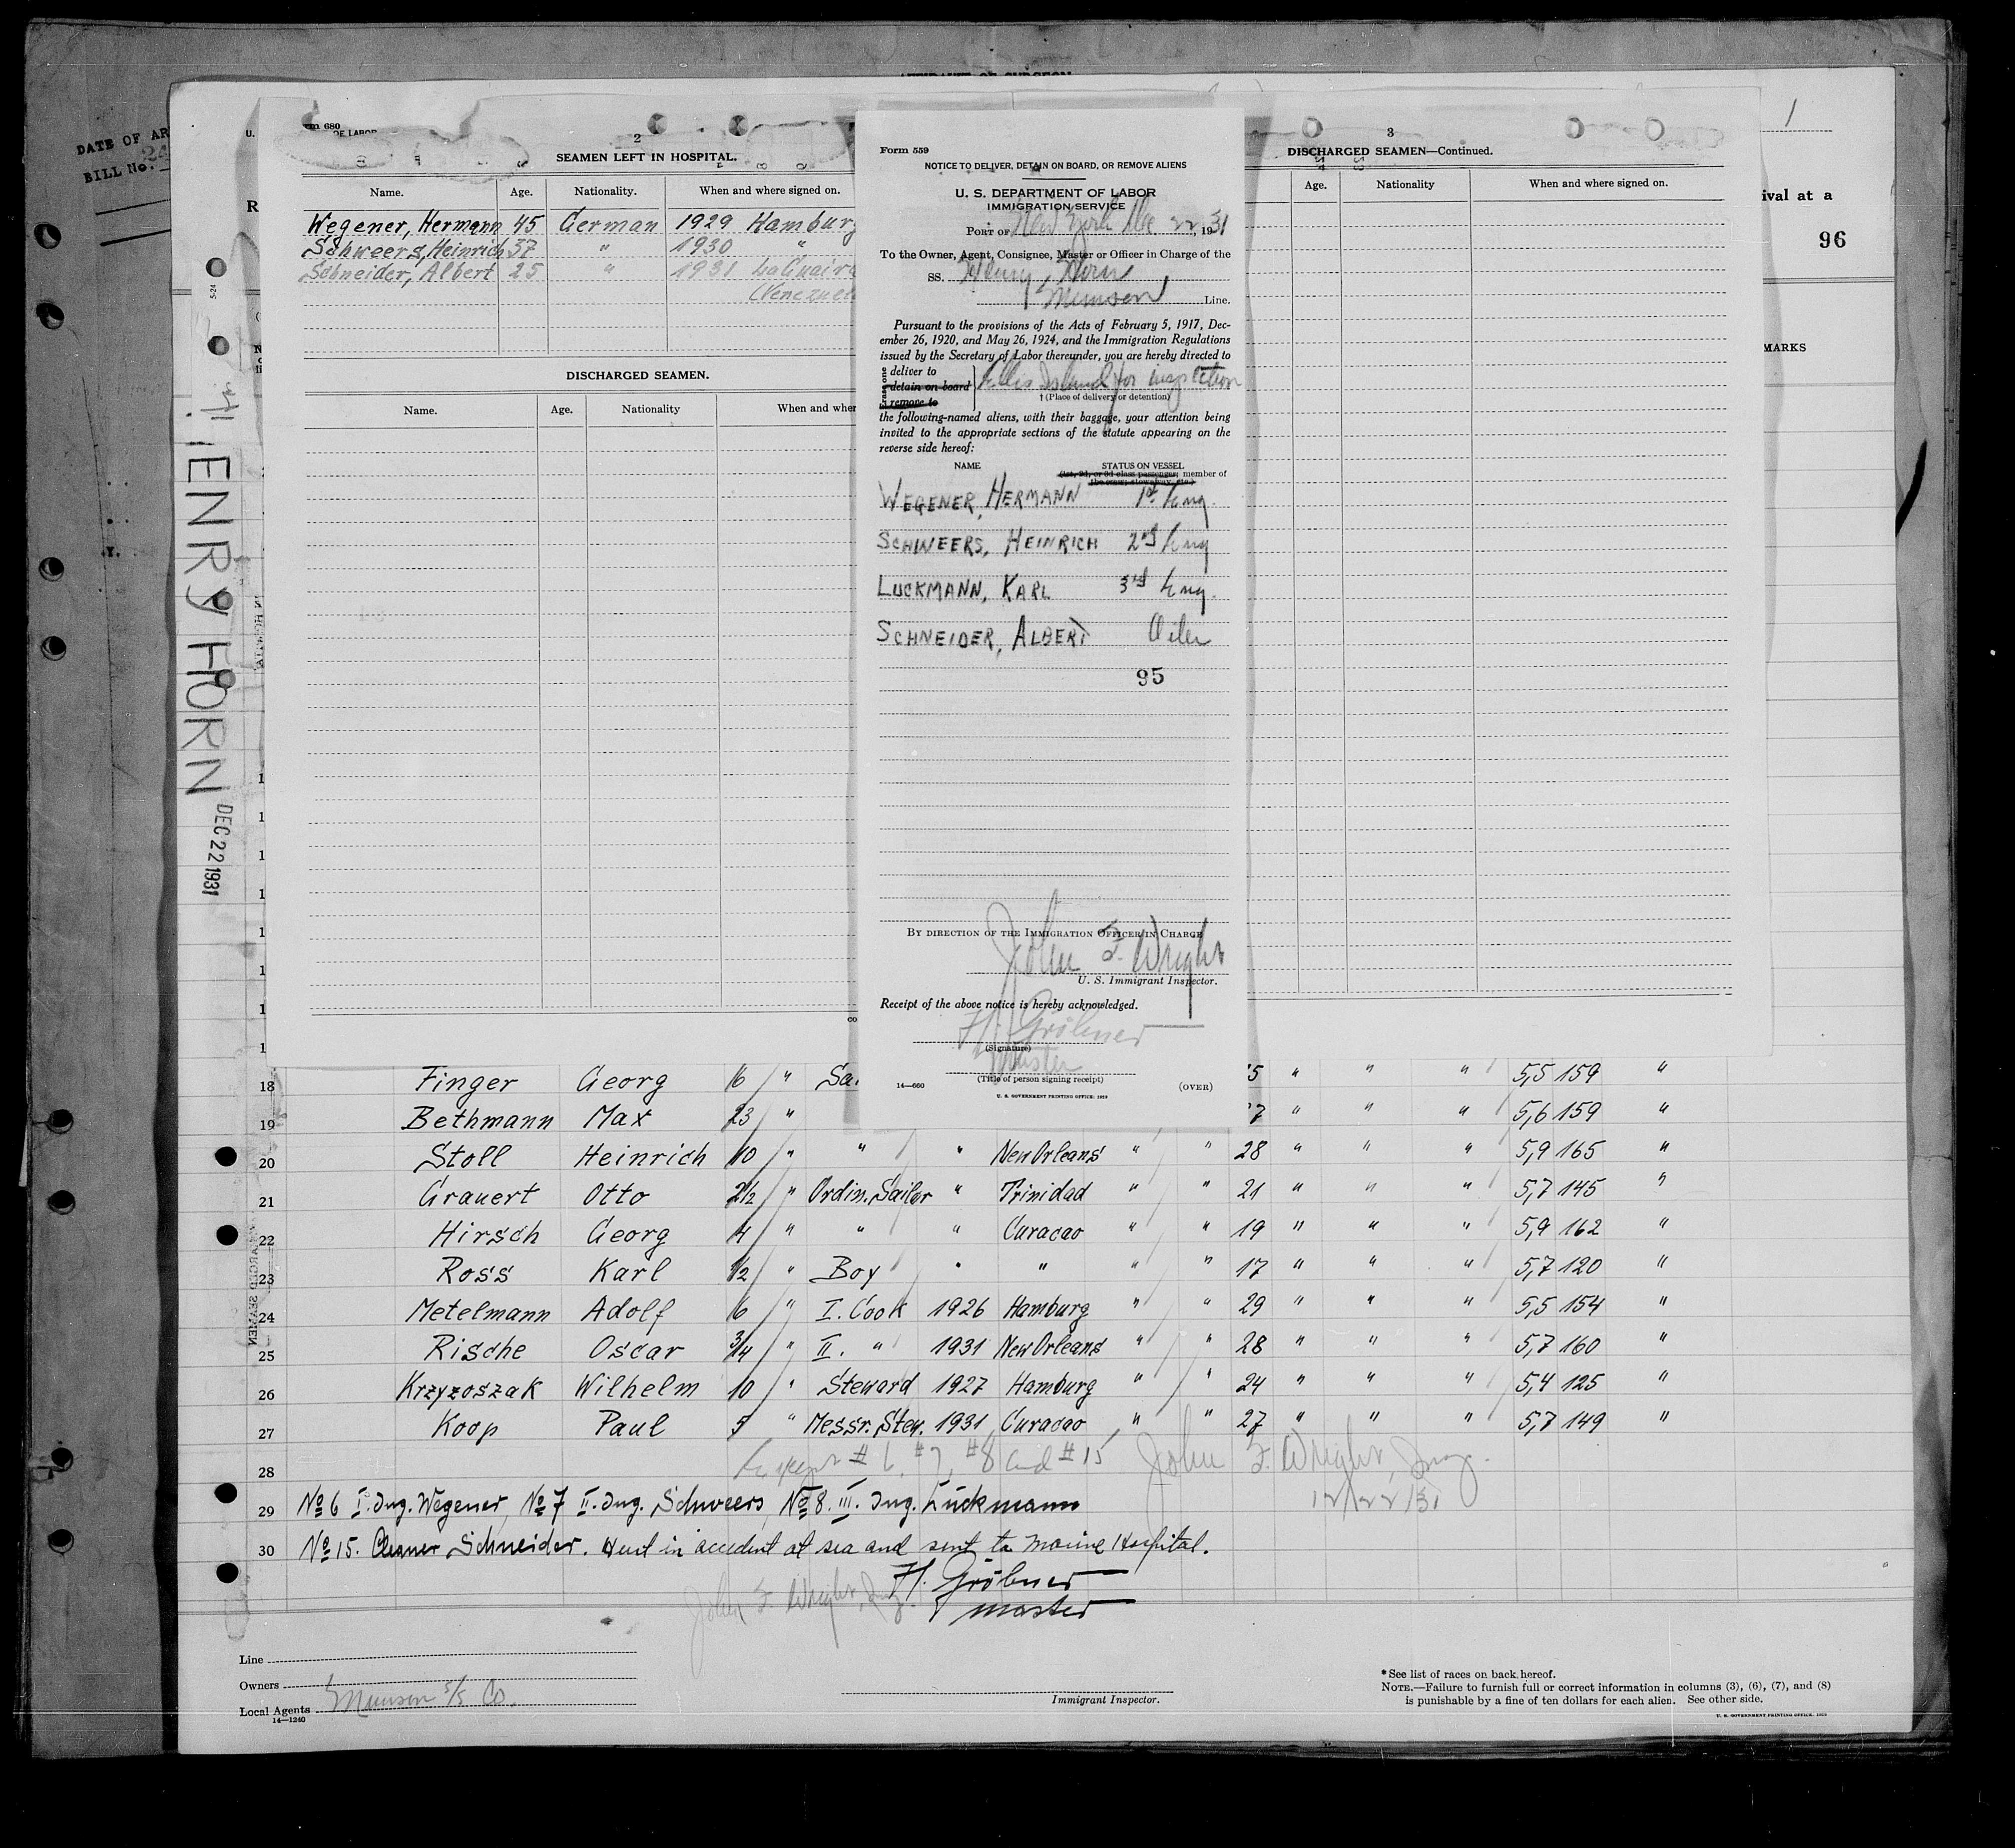 AFFIDAVIT OF SURGEON
DATE OF AR
BILL No. 24
HENRY HORN
DEC 22 1931
1
ival at a
96
MARKS
rm 680
OF LABOR
2
SEAMEN LEFT IN HOSPITAL.
Name. Age. Nationality. When and where signed on.
Wegener, Hermann 45 German 1929 Hamburg
Schweers, Heinrich 37 " 1930 "
Schneider, Albert 25 " 1931 La Guaira
(Venezuela
DISCHARGED SEAMEN.
Name. Age. Nationality When and wher
3
DISCHARGED SEAMEN—Continued.
Age. Nationality When and where signed on.
Form 559
NOTICE TO DELIVER, DETAIN ON BOARD, OR REMOVE ALIENS
U. S. DEPARTMENT OF LABOR
IMMIGRATION SERVICE
PORT OF New York Dec 22, 1931
To the Owner, Agent, Consignee, Master or Officer in Charge of the
SS. Henry Horn
Munson Line.
Pursuant to the provisions of the Acts of February 5, 1917, Dec-
ember 26, 1920, and May 26, 1924, and the Immigration Regulations
issued by the Secretary of Labor thereunder, you are hereby directed to
Erase one
deliver to
detain on board
remove to
Ellis Island for inspection
†(Place of delivery or detention)
the following-named aliens, with their baggage, your attention being
invited to the appropriate sections of the statute appearing on the
reverse side hereof:
NAME STATUS ON VESSEL
(1st, 2d, or 3d class passenger; member of
the crew; stowaway, etc.)
WEGENER, HERMANN 1st Eng.
SCHWEERS, HEINRICH 2nd Eng
LUCKMANN, KARL 3rd Eng.
SCHNEIDER, ALBERT Oiler
95
BY DIRECTION OF THE IMMIGRATION OFFICER IN CHARGE
John F. Wright
U. S. Immigrant Inspector.
Receipt of the above notice is hereby acknowledged.
H. Gröbner
(Signature)
Master
(Title of person signing receipt)
14—660 (OVER)
U. S. GOVERNMENT PRINTING OFFICE: 1929
18 Finger Georg 16 " Sa. 5 " " " 5,5 159 "
19 Bethmann Max 23 " 7 " " " 5,6 159 "
20 Stoll Heinrich 10 " " " New Orleans " " 28 " " " 5,9 165 "
21 Grauert Otto 2½ " Ordin. Sailor " Trinidad " " 21 " " " 5,7 145 "
22 Hirsch Georg 4 " " " Curacao " " 19 " " " 5,9 162 "
23 Ross Karl ½ " Boy " " " " 17 " " " 5,7 120 "
24 Metelmann Adolf 6 " I. Cook 1926 Hamburg " " 29 " " " 5,5 154 "
25 Rische Oscar 3/4 " II. " 1931 New Orleans " " 28 " " " 5,7 160 "
26 Krzyzoszak Wilhelm 10 " Steward 1927 Hamburg " " 24 " " " 5,4 125 "
27 Koop Paul 5 " Messr. Stew. 1931 Curacao " " 27 " " " 5,7 149 "
28 Except # 6, # 7, # 8 and # 15 John F. Wright, Insp.
12/22/31
29 No 6 I. Ing. Wegener, No 7 II. Ing. Schweers, No 8. III. Ing. Luckmann
30 No 15. Cleaner Schneider. Hurt in accident at sea and sent to Marine Hospital.
H. Gröbner
master
John F. Wright, Insp.
Line
Owners
Local Agents Munson S/S Co.
14—1240
Immigrant Inspector.
* See list of races on back hereof.
NOTE.—Failure to furnish full or correct information in columns (3), (6), (7), and (8)
is punishable by a fine of ten dollars for each alien. See other side.
U. S. GOVERNMENT PRINTING OFFICE: 1929